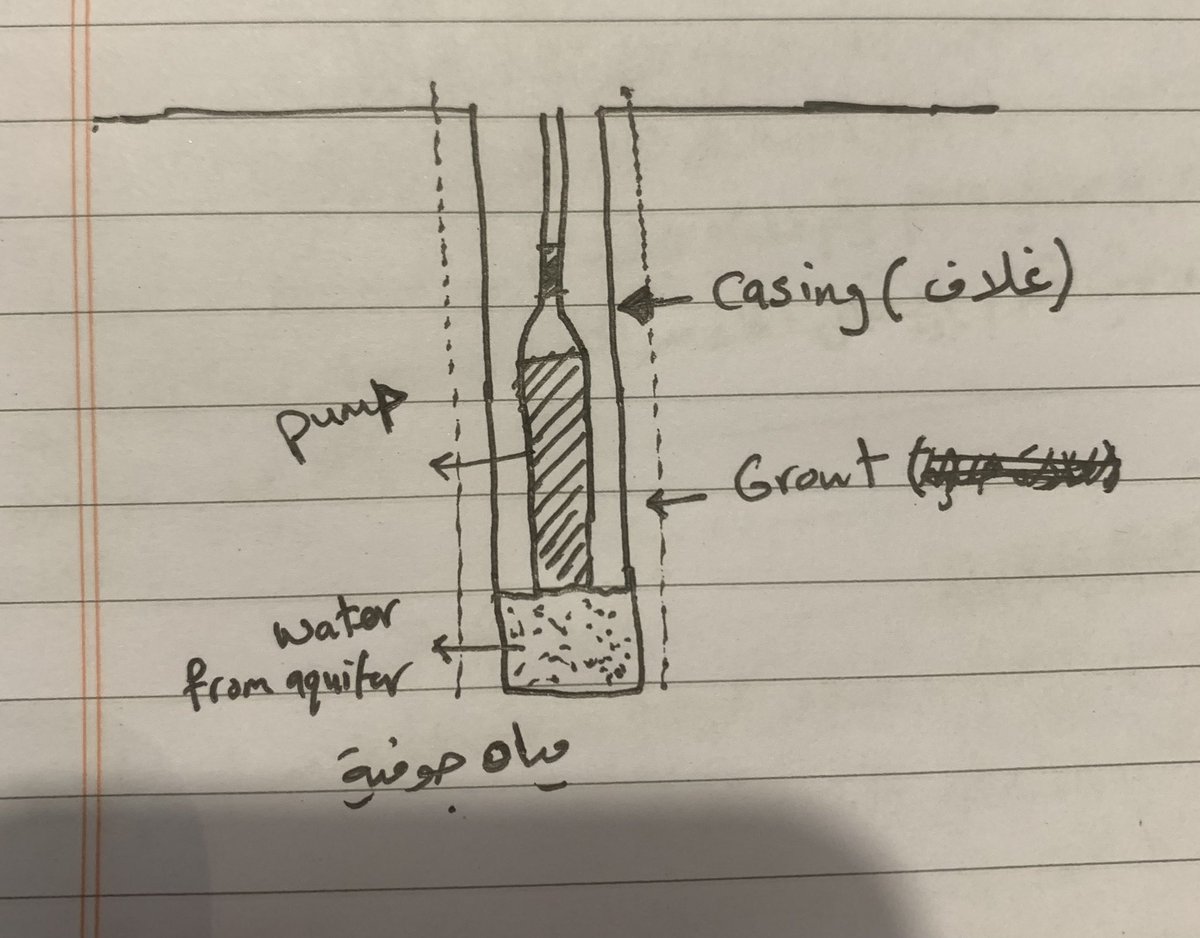 Casing (غلاف)
pump
Grout
water
from aquifer
مياه جوفية